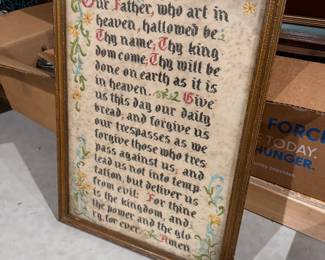 Our Father, who art in
heaven, hallowed be
Thy name, Thy king
dom come, Thy will be
done on earth as it is
in heaven. Give
us this day our daily
bread; and forgive us
our trespasses as we
forgive those who tres
pass against us; and
lead us not into temp
tation, but deliver us
from evil. For thine
is the kingdom, and
the power, and the glo
ry, for ever. Amen
FORCE
TODAY.
HUNGER.